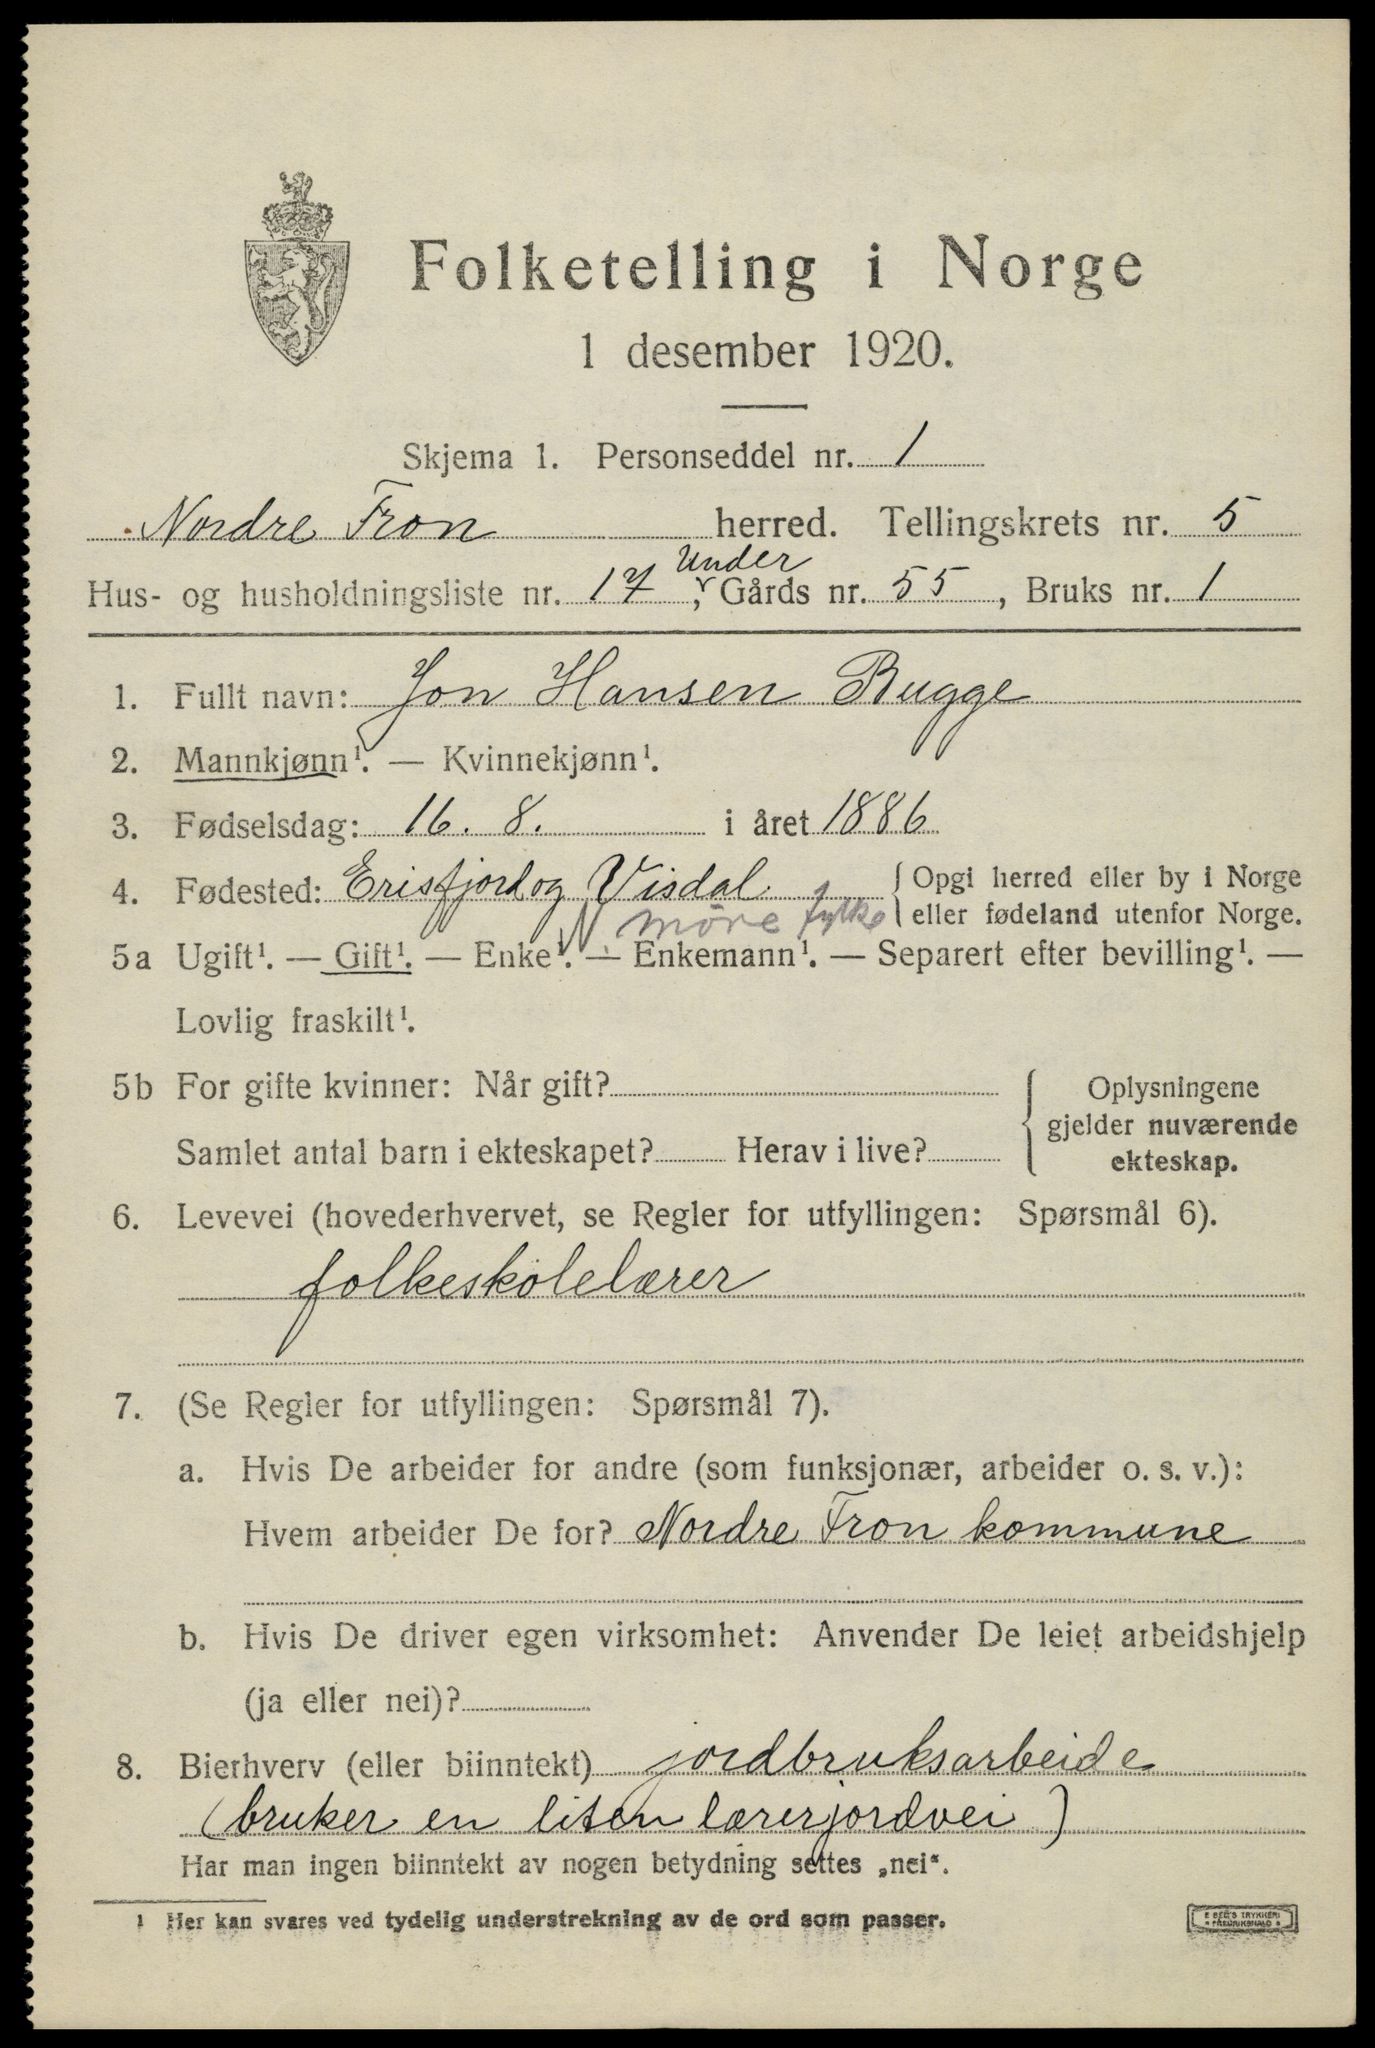 Folketelling i Norge
1 desember 1920.
Skjema 1. Personseddel nr. 1
Nordre Fron herred. Tellingskrets nr. 5
Under
Hus- og husholdningsliste nr. 17, Gårds nr. 55, Bruks nr. 1
1. Fullt navn: Jon Hansen Bugge
2. Mannkjønn¹. — Kvinnekjønn¹.
3. Fødselsdag: 16. 8. i året 1886
4. Fødested: Erisfjord og Visdal { Opgi herred eller by i Norge
N. Möre fylke eller fødeland utenfor Norge.
5a Ugift¹. — Gift¹. — Enke¹. — Enkemann¹. — Separert efter bevilling¹. —
Lovlig fraskilt¹.
5b For gifte kvinner: Når gift? { Oplysningene
gjelder nuværende
Samlet antal barn i ekteskapet? Herav i live? ekteskap.
6. Levevei (hovederhvervet, se Regler for utfyllingen: Spørsmål 6).
folkeskolelærer
7. (Se Regler for utfyllingen: Spørsmål 7).
a. Hvis De arbeider for andre (som funksjonær, arbeider o. s. v.):
Hvem arbeider De for? Nordre Fron kommune
b. Hvis De driver egen virksomhet: Anvender De leiet arbeidshjelp
(ja eller nei)?
8. Bierhverv (eller biinntekt) jordbruksarbeide
(bruker en liten lærerjordvei)
Har man ingen biinntekt av nogen betydning settes „nei“.
1 Her kan svares ved tydelig understrekning av de ord som passer.
E SEG'S TRYKKERI
FREDRIKSHALD